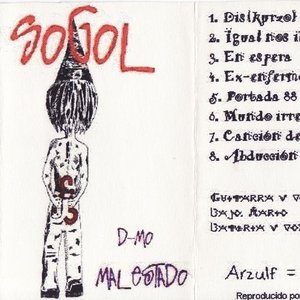 SOGOL
D-MO
MAL ESTADO
1. Dis(kurzo)
2. Igual nos i
3. En espera
4. Ex-enferm
5. Portada 88
6. Mundo irre
7. Canción de
8. Abducción
Guitarra y vo
Bajo, Mario
Bateria y vo
Arzulf =
Reproducido po